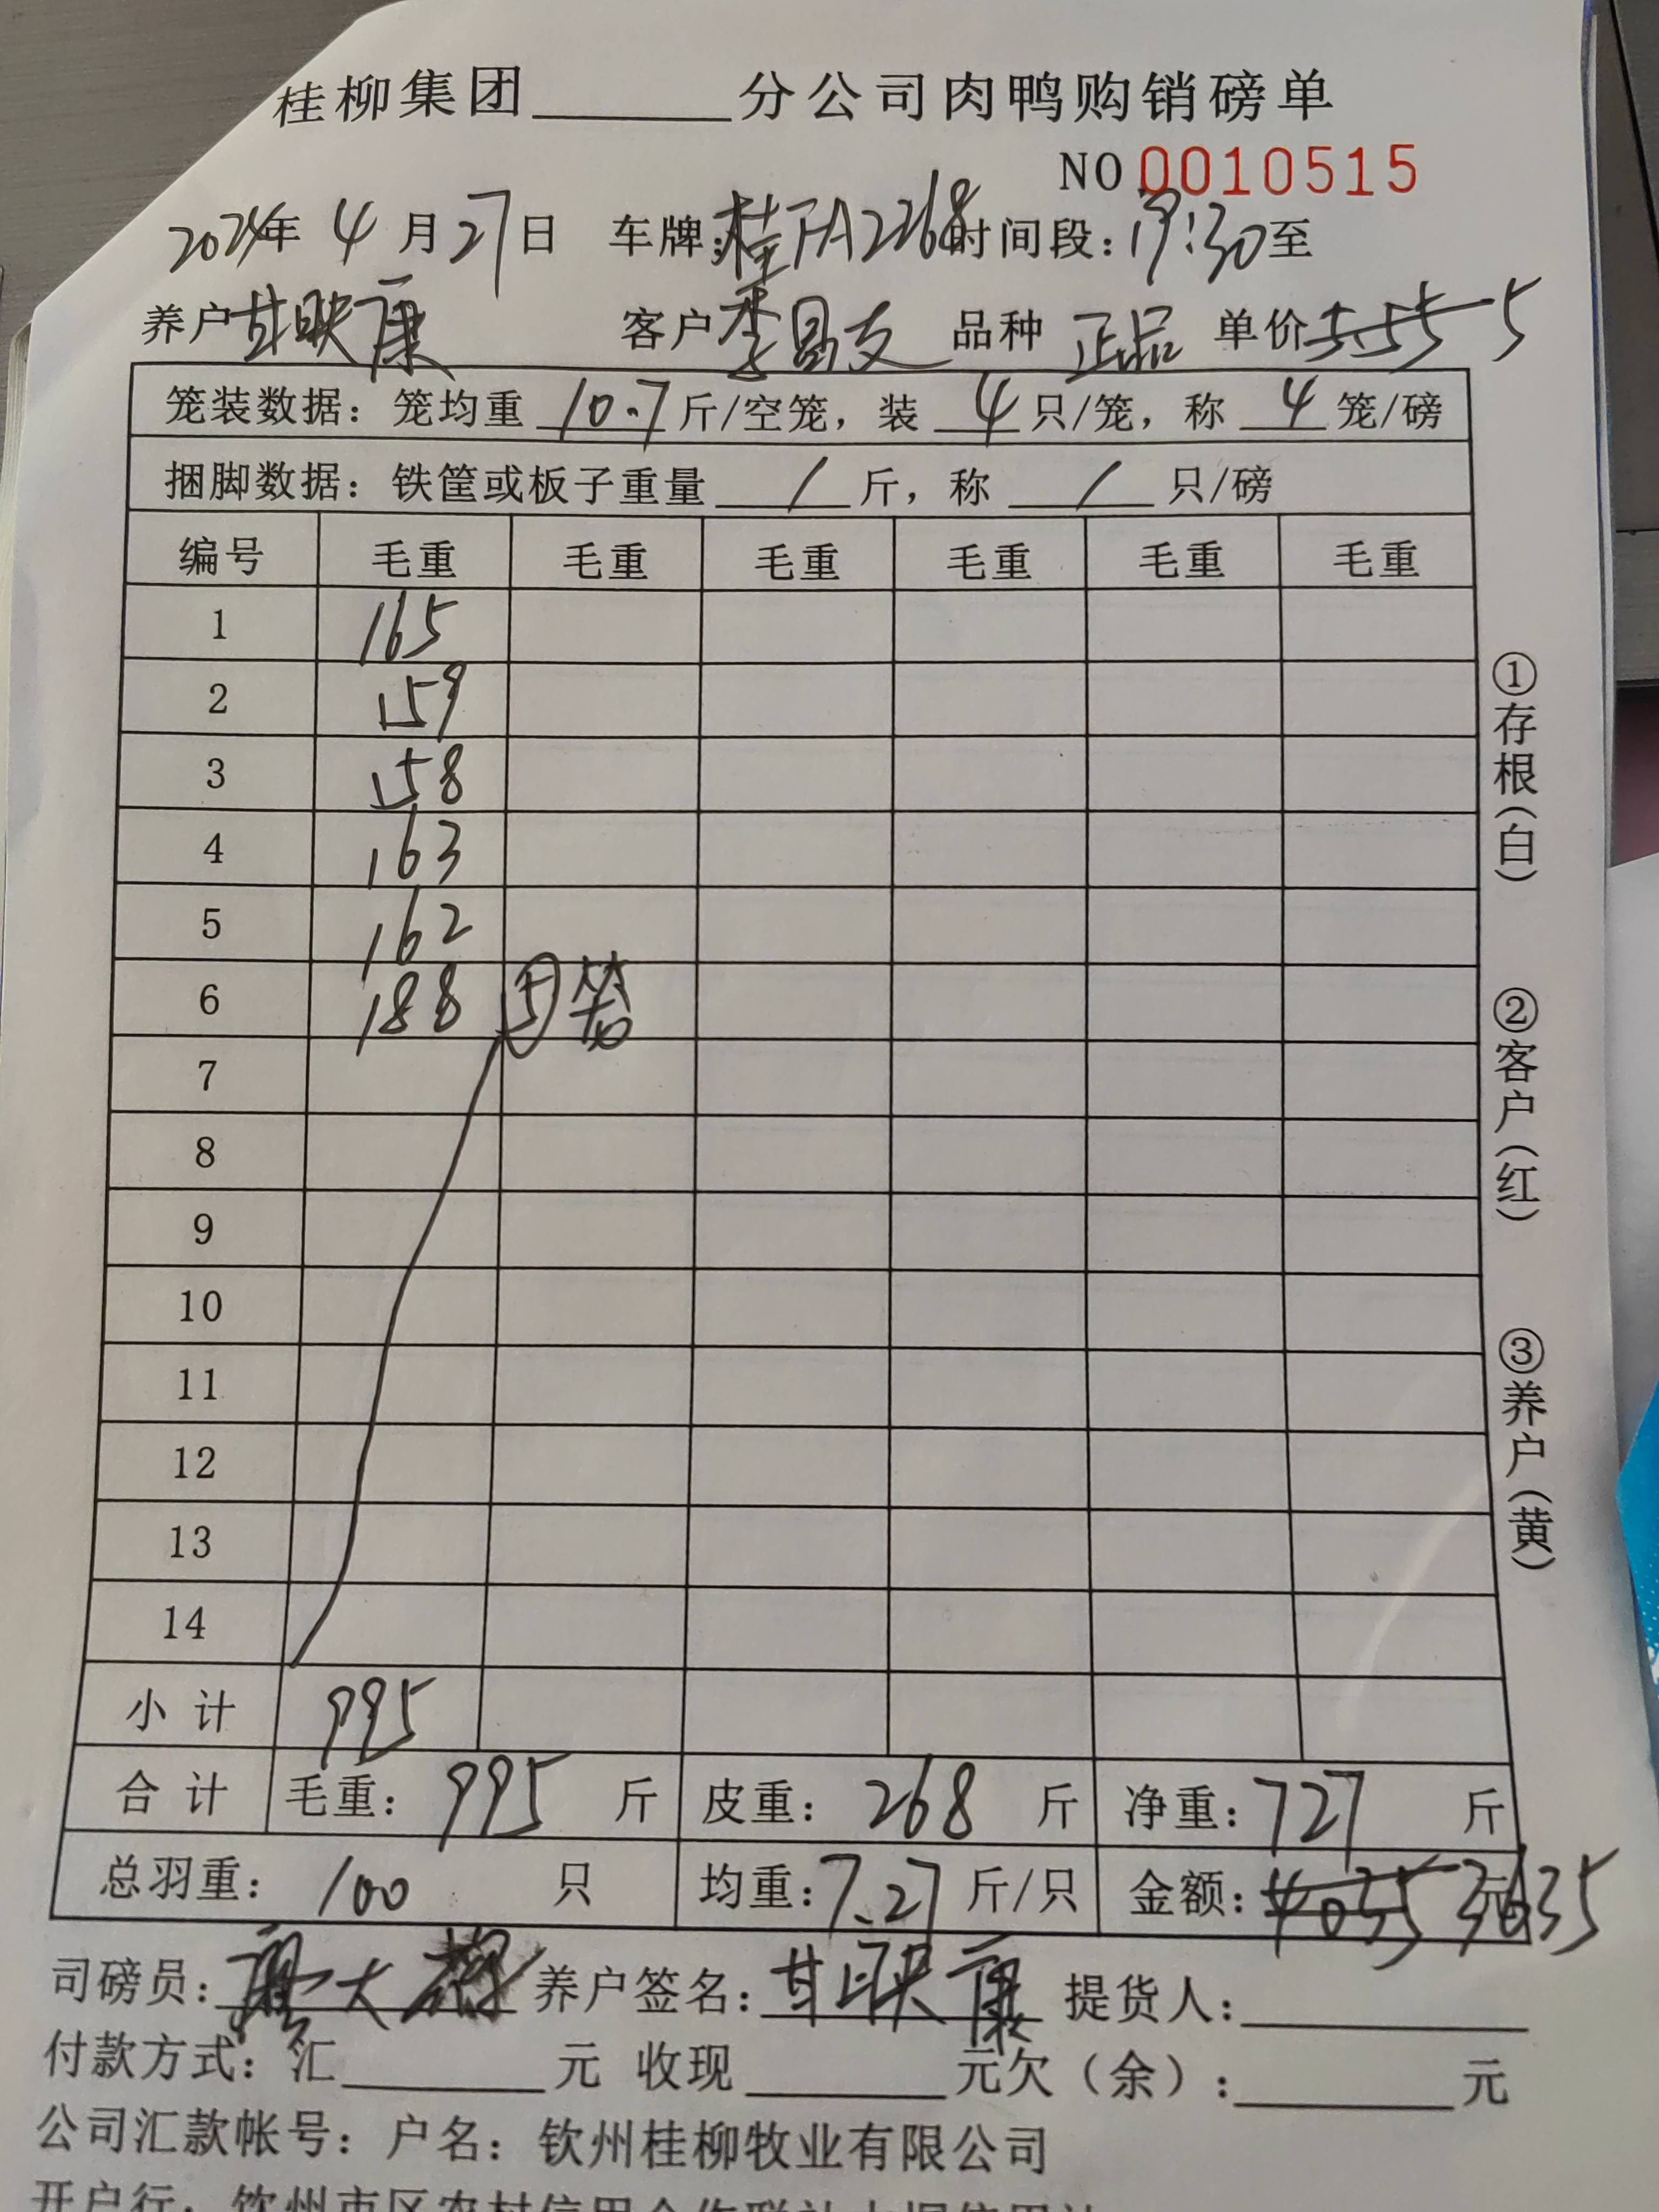 桂柳集团______分公司肉鸭购销磅单
NO 0010515
2024年 4 月 27 日 车牌:桂FA2268 时间段:17:30至
养户 甘映康 客户 李昌友 品种 正品 单价 5.55 5
笼装数据：笼均重 10.7 斤/空笼，装 4 只/笼，称 4 笼/磅
捆脚数据：铁筐或板子重量 / 斤，称 / 只/磅
编号 毛重 毛重 毛重 毛重 毛重 毛重
1 165
2 159
3 158
4 163
5 162
6 188 ⑤笼
7
8
9
10
11
12
13
14
小计 995
合计 毛重：995 斤 皮重：268 斤 净重：727 斤
总羽重：100 只 均重：7.27 斤/只 金额：4035 元 3635
司磅员：大 养户签名：甘映康 提货人：______
付款方式：汇______元 收现______元欠（余）：______元
公司汇款帐号：户名：钦州桂柳牧业有限公司
①存根（白）
②客户（红）
③养户（黄）